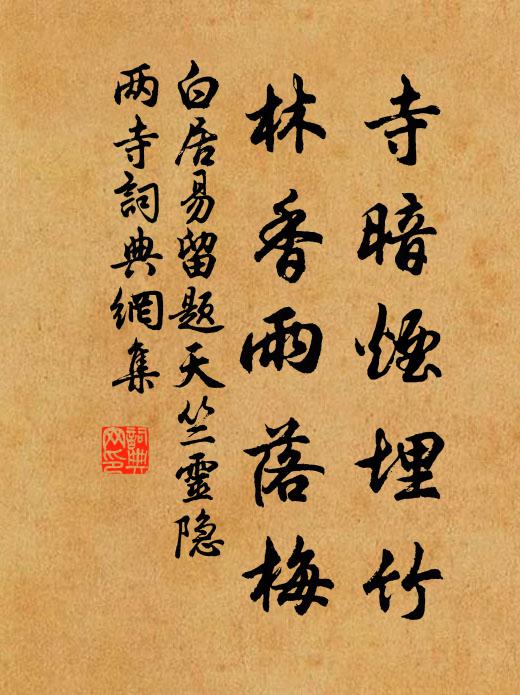 寺暗煙埋竹
林香雨落梅
白居易留题天竺靈隐
两寺詞典網集
詞典
网印